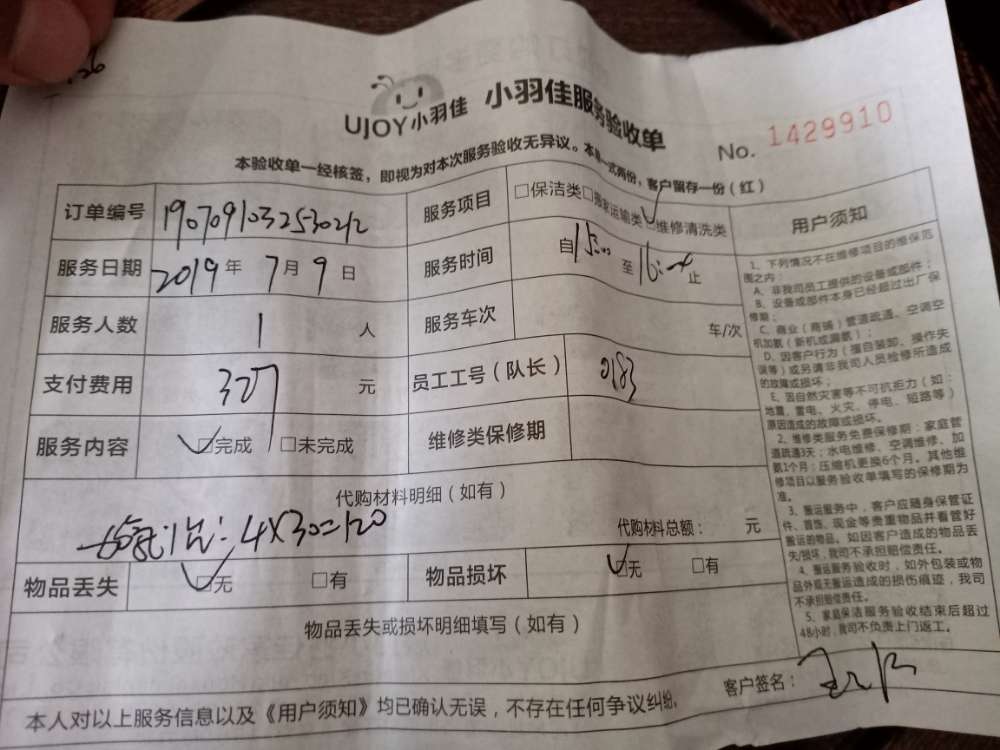 UJOY小羽佳 小羽佳服务验收单
No. 1429910
本验收单一经核签，即视为对本次服务验收无异议。本单一式两份，客户留存一份（红）
订单编号 190709103253022 服务项目 □保洁类□搬家运输类□维修清洗类
服务日期 2019年7月9日 服务时间 自15:00至16:00止
服务人数 1人 服务车次 车/次
支付费用 327元 员工工号（队长） 0183
服务内容 □完成 □未完成 维修类保修期
代购材料明细（如有）
4×30=120 代购材料总额： 元
物品丢失 □无 □有 物品损坏 □无 □有
物品丢失或损坏明细填写（如有）
客户签名：
本人对以上服务信息以及《用户须知》均已确认无误，不存在任何争议纠纷。
用户须知
1、下列情况不在维修项目的维保范
围之内：
A、非我司员工提供的设备或部件；
B、设备或部件本身已经超过出厂保
修期；
C、商业（商铺）管道疏通、空调空
机加氨（新机或漏氨）；
D、因客户行为（擅自装卸、操作失
误等）或另请非我司人员检修所造成
的故障或损坏；
E、因自然灾害等不可抗拒力（如：
地震、雷电、火灾、停电、短路等）
原因造成的故障或损坏。
2、维修类服务免费保修期：家庭管
道疏通3天；水电维修、空调维修、加
氨1个月；压缩机更换6个月。其他维
修项目以服务验收单填写的保修期为
准。
3、搬运服务中，客户应随身保管证
件、首饰、现金等贵重物品并看管好
搬运的物品。如因客户造成的物品丢
失/损坏，我司不承担赔偿责任。
4、搬运服务验收时，如外包装或物
品外观无搬运造成的损伤痕迹，我司
不承担赔偿责任。
5、家庭保洁服务验收结束后超过
48小时，我司不负责上门返工。